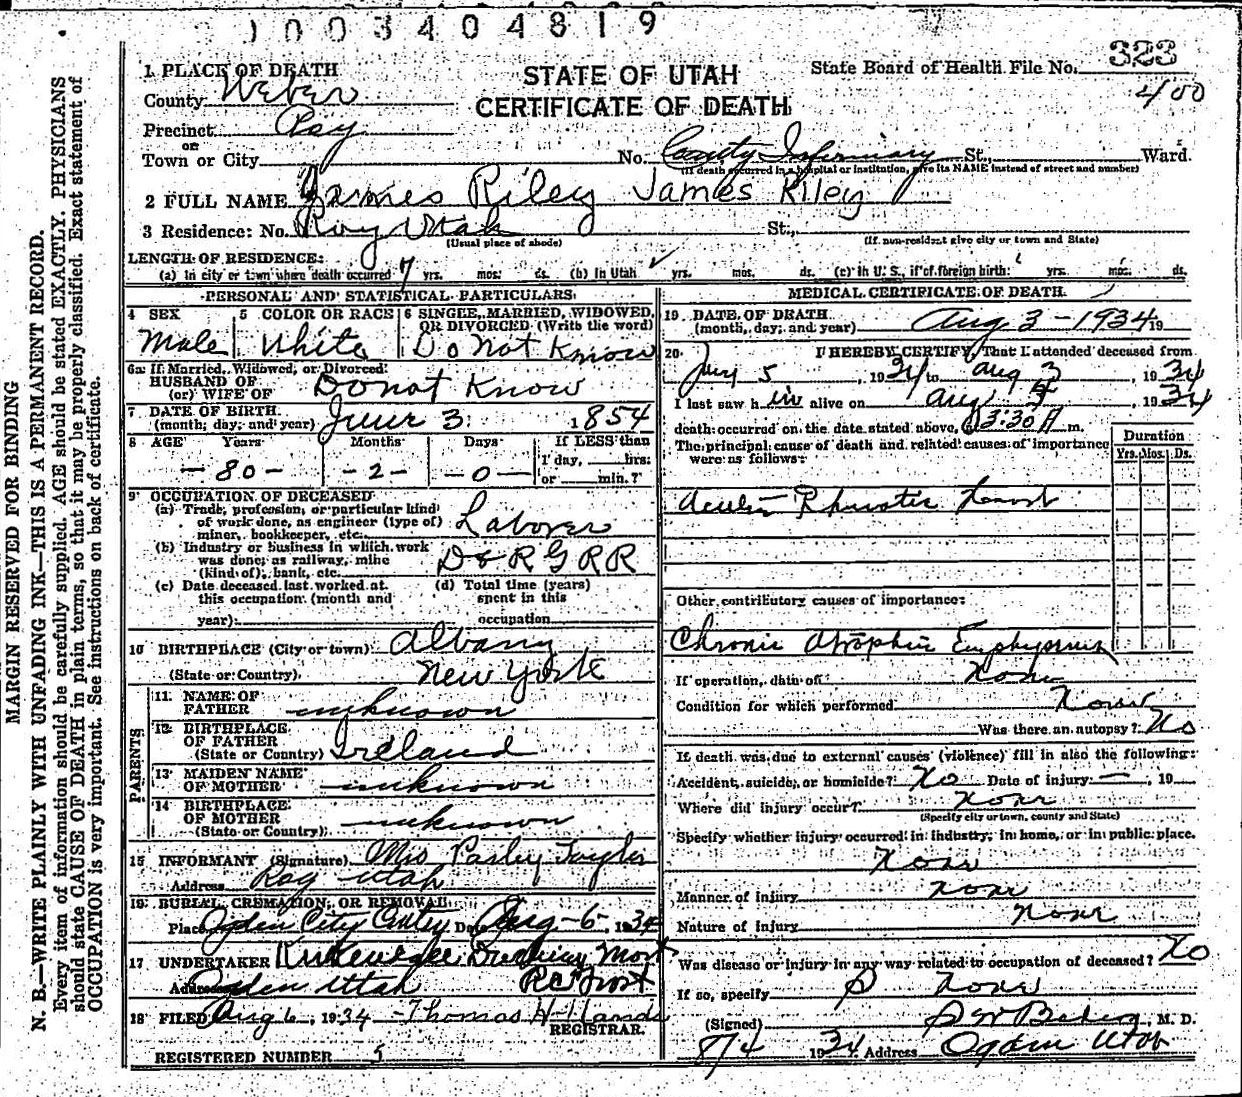 1003404819
MARGIN RESERVED FOR BINDING
N. B.—WRITE PLAINLY WITH UNFADING INK—THIS IS A PERMANENT RECORD.
Every item of information should be carefully supplied. AGE should be stated EXACTLY. PHYSICIANS
should state CAUSE OF DEATH in plain terms, so that it may be properly classified. Exact statement of
OCCUPATION is very important. See instructions on back of certificate.
STATE OF UTAH
CERTIFICATE OF DEATH
State Board of Health File No. 323
400
1. PLACE OF DEATH
County Weber
Precinct Roy
or
Town or City No. County Infirmary St., Ward.
(If death occurred in a hospital or institution, give its NAME instead of street and number)
2 FULL NAME James Riley James Riley
3 Residence: No. Roy Utah St.,
(Usual place of abode) (If non-resident give city or town and State)
LENGTH OF RESIDENCE:
(a) In city or town where death occurred 7 yrs. mos. ds. (b) In Utah yrs. mos. ds. (c) In U. S., if of foreign birth: yrs. mos. ds.
PERSONAL AND STATISTICAL PARTICULARS
4 SEX Male
5 COLOR OR RACE White
6 SINGLE, MARRIED, WIDOWED, OR DIVORCED (Write the word) Do Not Know
6a If Married, Widowed, or Divorced
HUSBAND OF
(or) WIFE OF Do not Know
7 DATE OF BIRTH
(month, day, and year) June 3 1854
8 AGE Years Months Days If LESS than
—80— —2— —0— 1 day, hrs.
or min.?
9 OCCUPATION OF DECEASED
(a) Trade, profession, or particular kind
of work done, as engineer (type of)
miner, bookkeeper, etc. Laborer
(b) Industry or business in which work
was done, as railway, mine
(kind of), bank, etc. D & R G R R
(c) Date deceased last worked at
this occupation (month and
year)
(d) Total time (years)
spent in this
occupation
10 BIRTHPLACE (City or town) Albany
(State or Country) New York
PARENTS
11 NAME OF
FATHER unknown
12 BIRTHPLACE
OF FATHER
(State or Country) Ireland
13 MAIDEN NAME
OF MOTHER unknown
14 BIRTHPLACE
OF MOTHER
(State or Country) unknown
15 INFORMANT (Signature) Mrs Parley Taylor
Address Roy Utah
16 BURIAL, CREMATION, OR REMOVAL
Place Ogden City Date Aug-6, 1934
17 UNDERTAKER
Address Ogden Utah
18 FILED Aug 6, 1934 Thomas H
REGISTRAR.
REGISTERED NUMBER 5
MEDICAL CERTIFICATE OF DEATH
19. DATE OF DEATH
(month, day, and year) Aug 3-1934 19
20. I HEREBY CERTIFY, That I attended deceased from
5, 1934 to Aug 3, 1934
I last saw him alive on Aug, 1934
death occurred on the date stated above, 3:30 A m.
The principal cause of death and related causes of importance
were as follows:
Duration
Yrs. Mos. Ds.
Other contributory causes of importance:
Chronic Emphysema
If operation, date of None
Condition for which performed None
Was there an autopsy? No
If death was due to external causes (violence) fill in also the following:
Accident, suicide, or homicide? No Date of injury —, 19
Where did injury occur? None
(Specify city or town, county and State)
Specify whether injury occurred in industry, in home, or in public place.
None
Manner of injury None
Nature of injury None
Was disease or injury in any way related to occupation of deceased? No
If so, specify None
(Signed) M. D.
8/4 1934 Address Ogden Utah